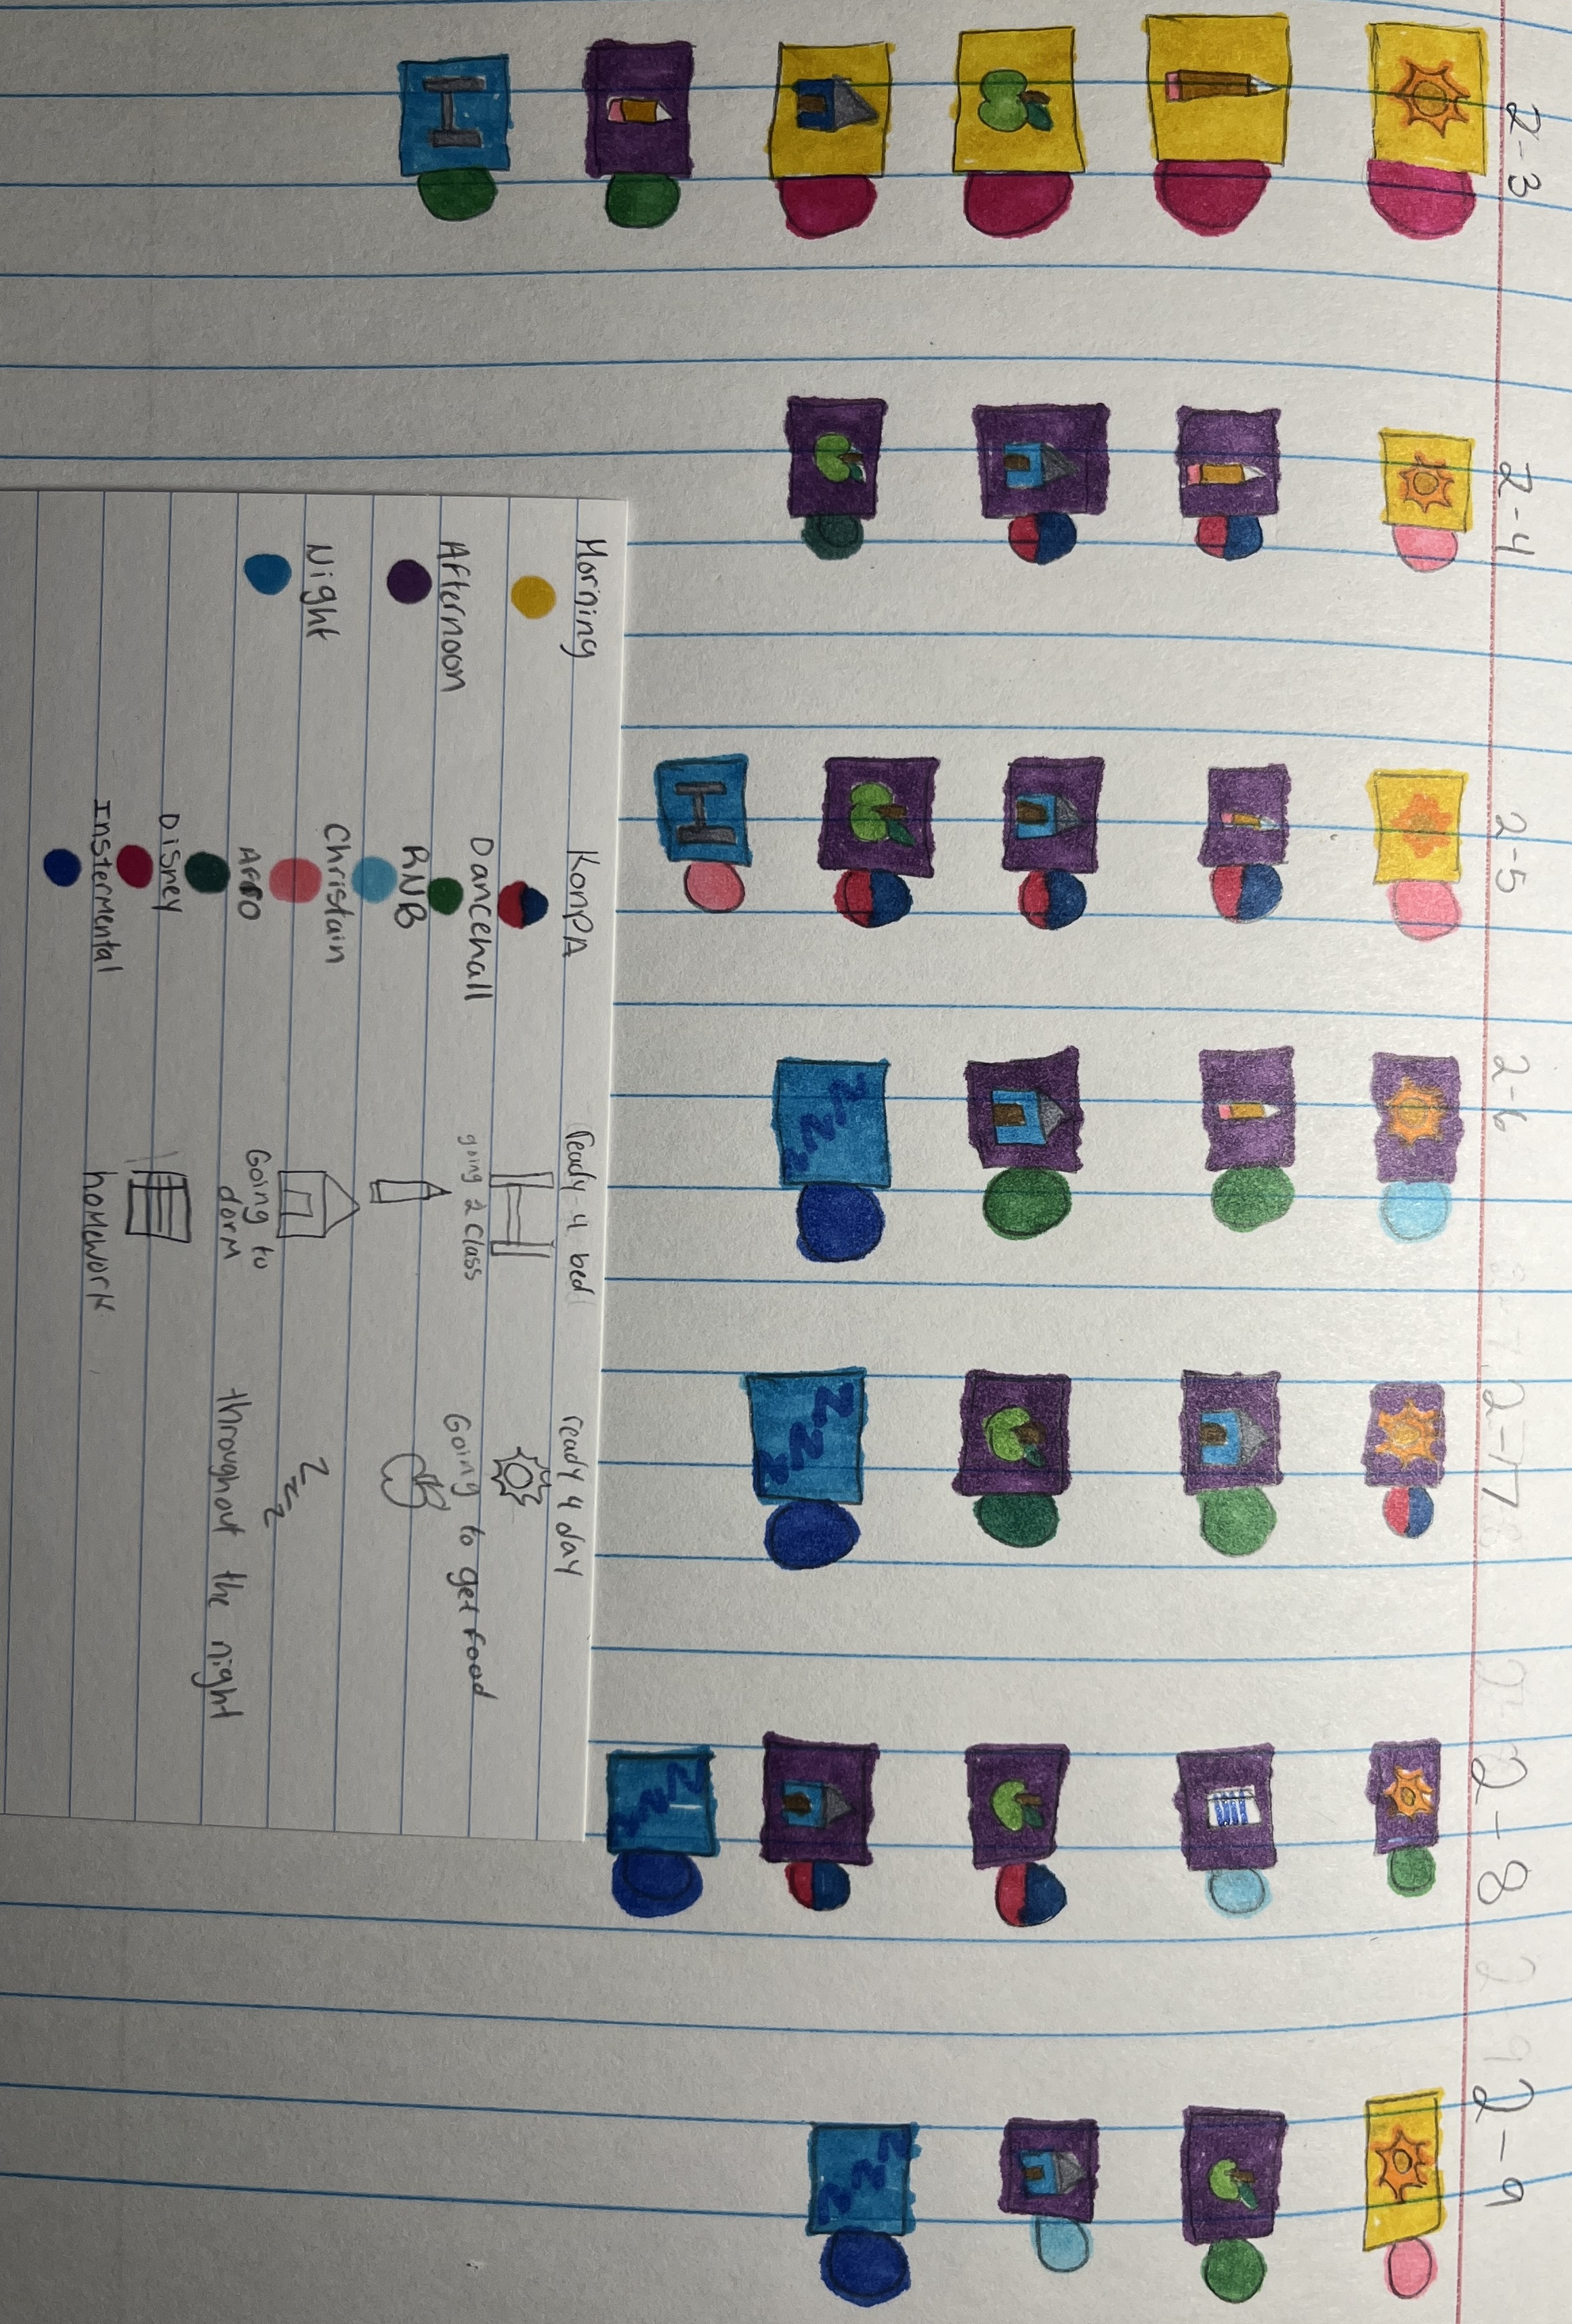 2-3 2-4 2-5 2-6 2-7 2-8 2-9
Morning
Afternoon
Night
KonPA
Dancehall
RNB
Christain
AFrO
Disney
Instermental
ready 4 bed
going 2 Class
Going to
dorM
homework
ready 4 day
Going to get food
zzz
throughout the night